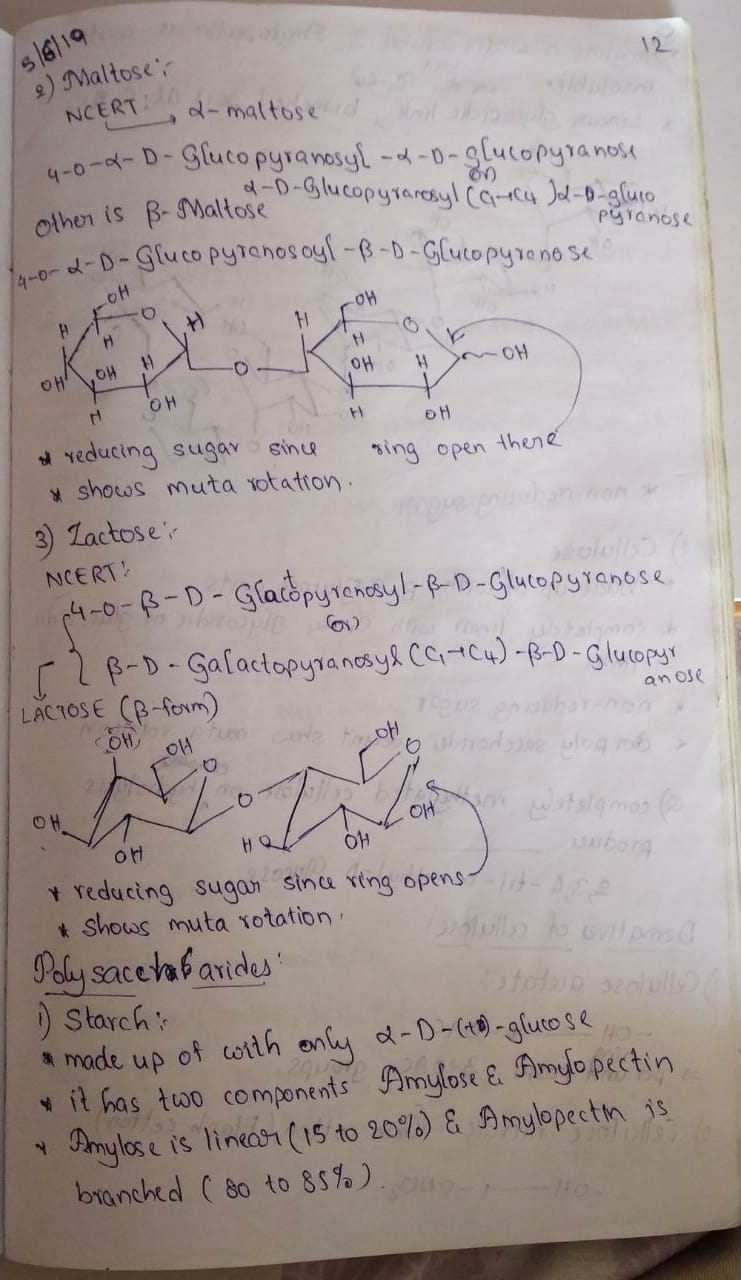 5/6/19
12
2) Maltose :-
NCERT : → α-maltose
4-O-α-D-Glucopyranosyl-α-D-glucopyranose
(or)
α-D-Glucopyranosyl (C1→C4) α-D-gluco
pyranose
Other is β-Maltose
4-O-α-D-Glucopyranosoyl-β-D-Glucopyranose
OH
OH
H
O
H
H
O
H
H
H
H
OH
OH
H
OH
OH
O
H
OH
H
OH
H
OH
* reducing sugar since ring open there
* shows muta rotation.
3) Lactose :-
NCERT :
4-O-β-D-Glactopyranosyl-β-D-Glucopyranose
(or)
β-D-Galactopyranosyl (C1→C4)-β-D-Glucopyr
anose
LACTOSE (β-form)
OH
OH
O
OH
O
O
OH
OH
OH
HO
OH
* reducing sugar since ring opens
* shows muta rotation.
Polysaccharides :
1) Starch :-
* made up of with only α-D-(+)-glucose
* it has two components Amylose & Amylopectin
* Amylose is linear (15 to 20%) & Amylopectin is
branched (80 to 85%).